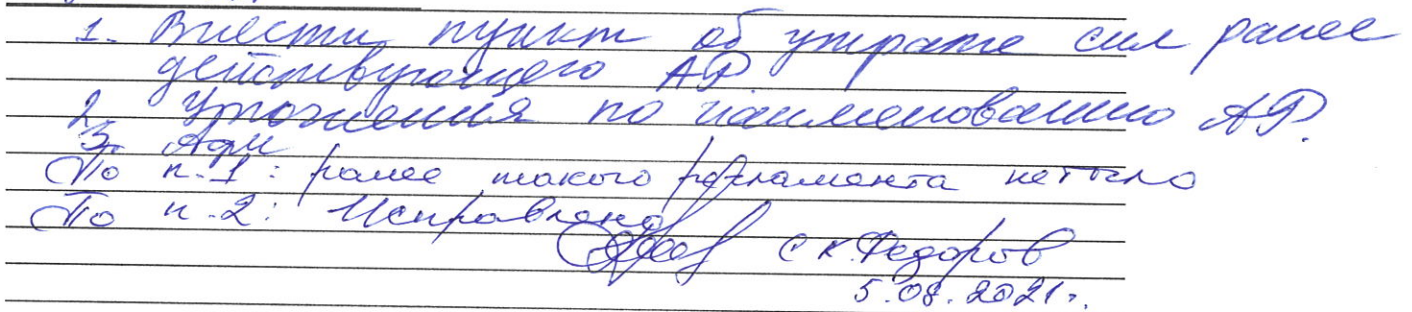 1. Внести пункт об утрате сил ранее
действующего АР
2. Уточнения по наименованию АР.
3. Адм
По п.1: ранее такого регламента не было
По п.2: Исправлено
С.К.Федоров
5.08.2021г.